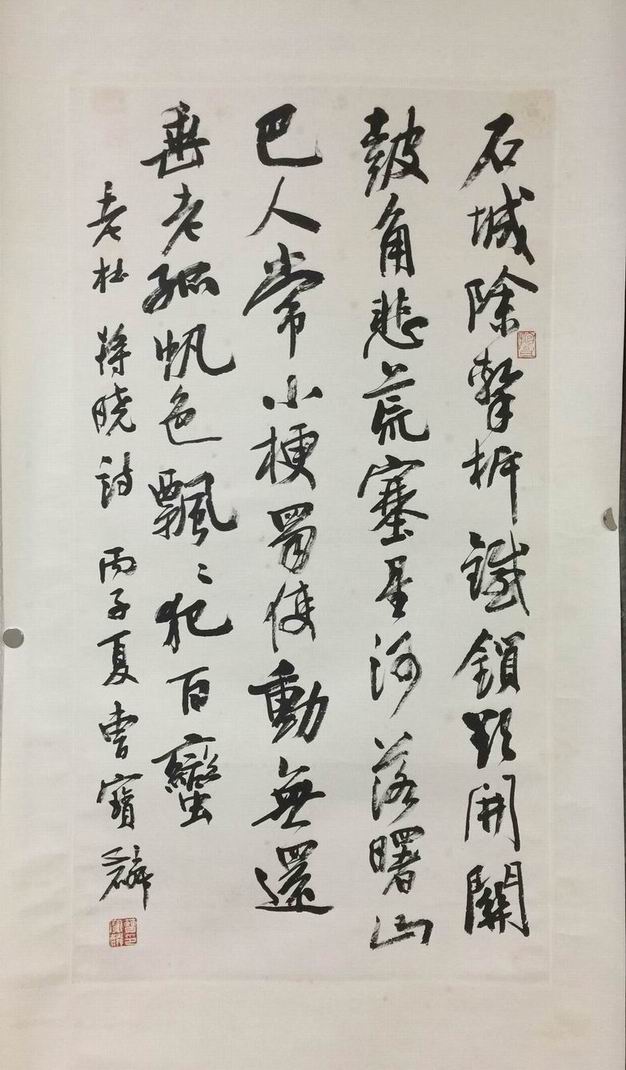 石城除擊柝鐵鎖欲開關
皷角悲荒塞星河落曙山
巴人常小梗蜀使動無還
垂老孤帆色飄〻犯百蠻
老杜將曉詩 丙子夏曹寶麟